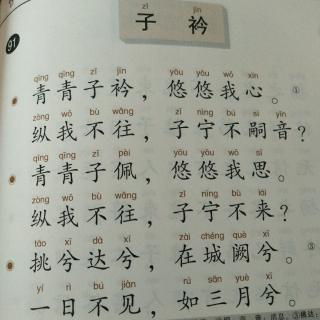 zǐ jīn
子衿
91
qīng qīng zǐ jīn yōu yōu wǒ xīn
青青子衿，悠悠我心。①
zòng wǒ bù wǎng zǐ nìng bù sì yīn
纵我不往，子宁不嗣音？
qīng qīng zǐ pèi yōu yōu wǒ sī
青青子佩，悠悠我思。
zòng wǒ bù wǎng zǐ nìng bù lái
纵我不往，子宁不来？
tāo xī dá xī zài chéng què xī
挑兮达兮，在城阙兮。③
yí rì bú jiàn rú sān yuè xī
一日不见，如三月兮。